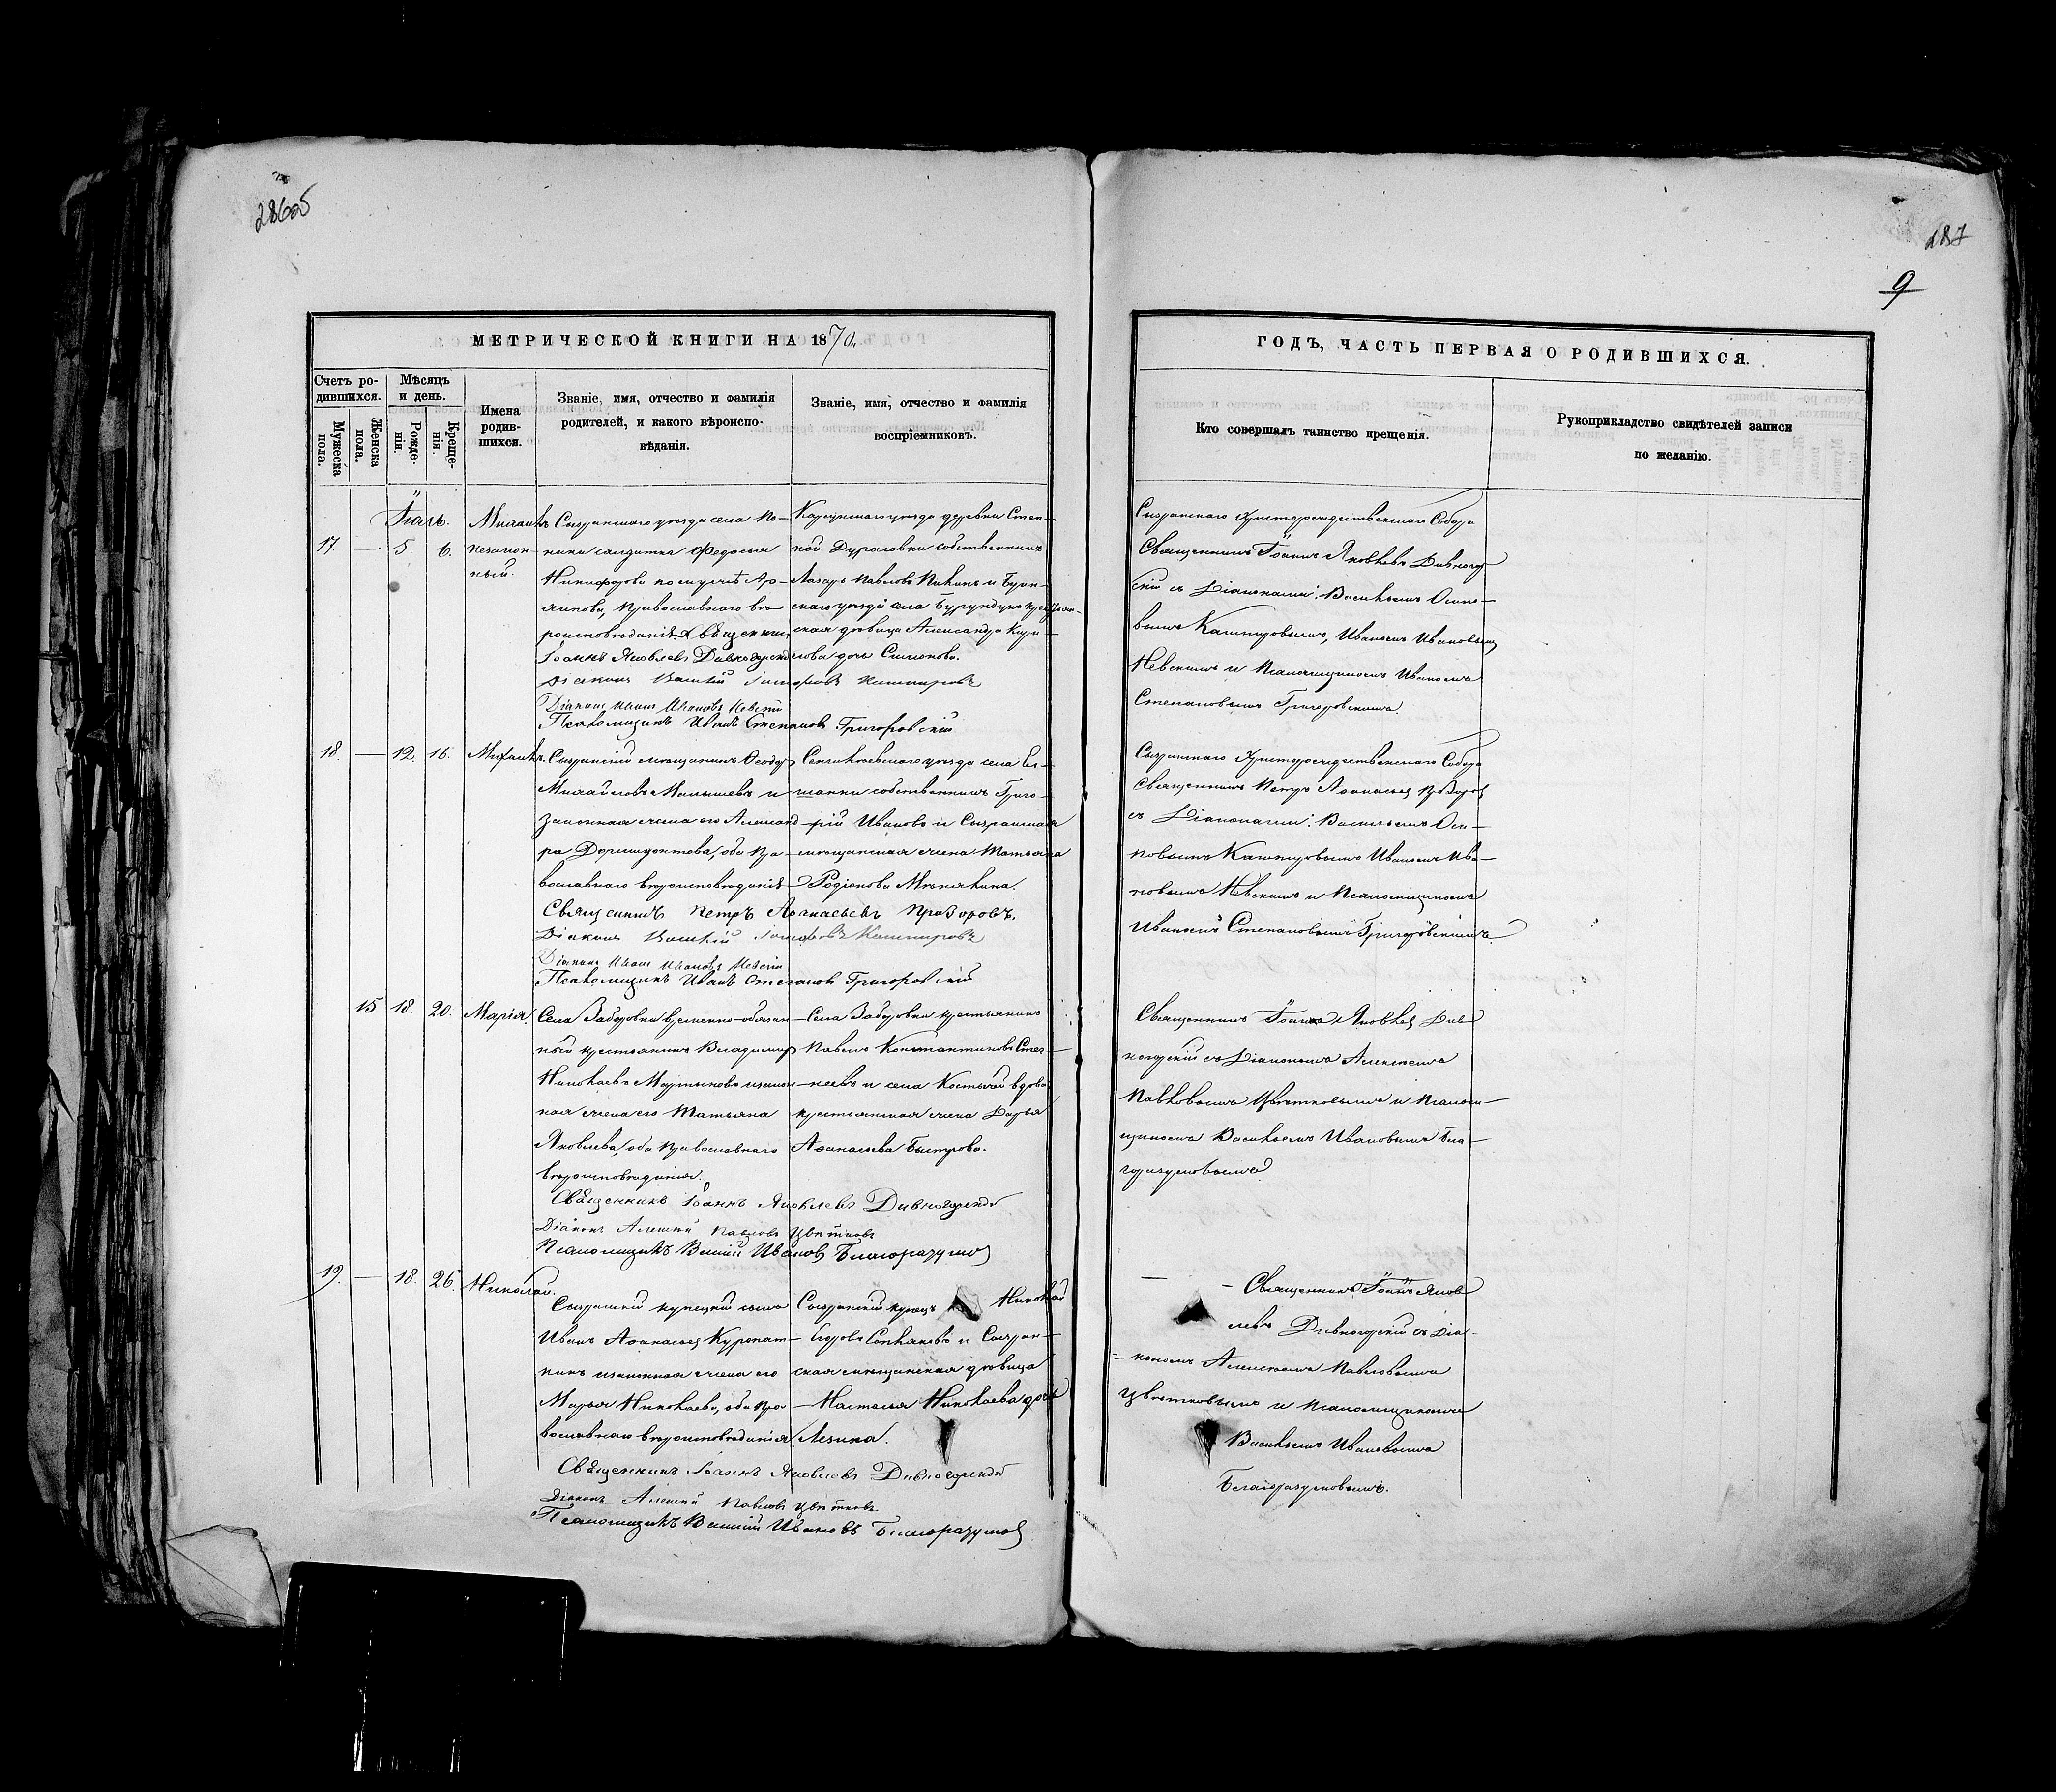 287
9
МЕТРИЧЕСКОЙ КНИГИ НА 1870
ГОДЪ, ЧАСТЬ ПЕРВАЯ О РОДИВШИХСЯ.
Счетъ ро-
дившихся.
Мужеска
пола.
Женска
пола.
Мѣсяцъ
и день.
Рожде-
нія.
Креще-
нія.
Имена
родив-
шихся.
Званіе, имя, отчество и фамилія
родителей, и какого вѣроиспо-
вѣданія.
Званіе, имя, отчество и фамилія
воспріемниковъ.
Кто совершалъ таинство крещенія.
Рукоприкладство свидѣтелей записи
по желанію.
17. — 5. 6.
незакон-
ный.
Сызранскаго уѣзда села
солдатка Федосья
Никифорова по мужѣ
православнаго вѣ-
роисповѣданія. Священникъ
Іоаннъ Яковлевъ Дивногорскій
Діаконъ Василій Кашпировъ
Діаконъ Иванъ Ивановъ Невскій
Псаломщикъ Иванъ Степановъ Григоровскій
Карсунскаго уѣзда деревни Степ-
ной Дурасовки собственникъ
Лазарь Павловъ и Буин-
скаго уѣзда села Бурундукъ крестьян-
ская дѣвица Александра Кири-
лова дочь Симонова.
Сызранскаго Христорождественскаго Собора
Священникъ Іоаннъ Яковлевъ Дивногор
скій съ Діаконами: Васильемъ Осипо-
вымъ Кашпировымъ, Иваномъ Ивановымъ
Невскимъ и Псаломщикомъ Иваномъ
Степановымъ Григоровскимъ.
18. — 12. 16.
Михаилъ.
Сызранскій мѣщанинъ Ѳеодоръ
Михайловъ Малышевъ и
законная жена его Александ
ра Дормидонтова, оба пра-
вославнаго вѣроисповѣданія
Священникъ Петръ Аѳанасьевъ Прозоровъ.
Діаконъ Василій Кашпировъ
Діаконъ Иванъ Ивановъ Невскій
Псаломщикъ Иванъ Степановъ Григоровскій
Сенгилеевскаго уѣзда села Ел-
шанки собственникъ Григо-
рій Ивановъ и Сызранская
мѣщанская жена Татьяна
Родіонова Мѣлякина.
Сызранскаго Христорождественскаго Собора
Священникъ Петръ Аѳанасьевъ Прозоровъ
съ Діаконами: Васильемъ Оси-
повымъ Кашпировымъ Иваномъ Ива-
новымъ Невскимъ и Псаломщикомъ
Иваномъ Степановымъ Григоровскимъ.
15 18. 20.
Марія.
Села Заборовки временно-обязан-
ный крестьянинъ Владимиръ
Николаевъ Мартыновъ и закон-
ная жена его Татьяна
Яковлева, оба православнаго
вѣроисповѣданія.
Священникъ Іоаннъ Яковлевъ Дивногорскій
Діаконъ Алексѣй Павловъ Цвѣтковъ
Псаломщикъ Василій Ивановъ Благоразумовъ
Села Заборовки крестьянинъ
Павелъ Константиновъ
и села Костычей вдова
крестьянская жена Дарья
Аѳанасьева Быстрова.
Священникъ Іоаннъ Яковлевъ Див
ногорскій съ Діакономъ Алексѣемъ
Павловымъ Цвѣтковымъ и Псалом-
щикомъ Васильемъ Ивановымъ Бла-
горазумовымъ.
19. — 18. 26.
Николай.
Сызранскій купецкій сынъ
Иванъ Аѳанасьевъ Куропат-
кинъ и законная жена его
Марья Николаева, оба пра-
вославнаго вѣроисповѣданія.
Священникъ Іоаннъ Яковлевъ Дивногорскій
Діаконъ Алексѣй Павловъ Цвѣтковъ.
Псаломщикъ Василій Ивановъ Благоразумовъ
Сызранскій купецъ Николай
и Сызран-
ская мѣщанская дѣвица
Настасья Николаева дочь
Лезина.
— — Священникъ Іоаннъ Яков
левъ Дивногорскій съ Діа-
кономъ Алексѣемъ Павловымъ
Цвѣтковымъ и Псаломщикомъ
Васильемъ Ивановымъ
Благоразумовымъ.